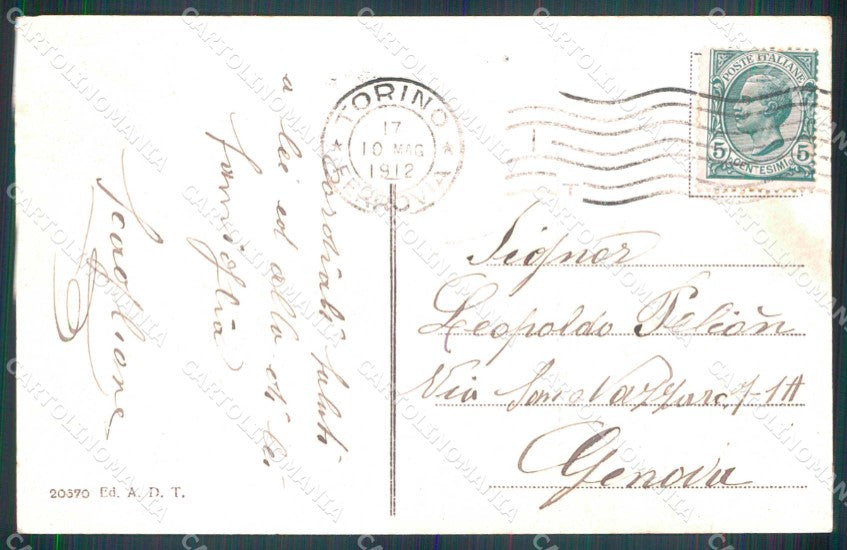 Cordiali saluti
a lei ed alla di lei
famiglia
Scaglione
TORINO
17
10 MAG
1912
FERROVIA
POSTE ITALIANE
5 5
CENTESIMI
Signor
Leopoldo
Via San Nazzaro
Genova
20370 Ed. A. D. T.
CARTOLINOMANIA